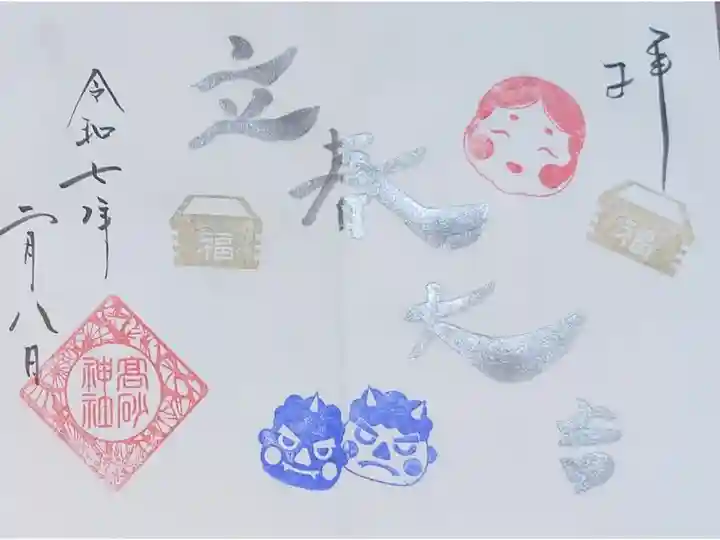 拝
福
立春大吉
福
令和七年
二月八日
髙砂
神社